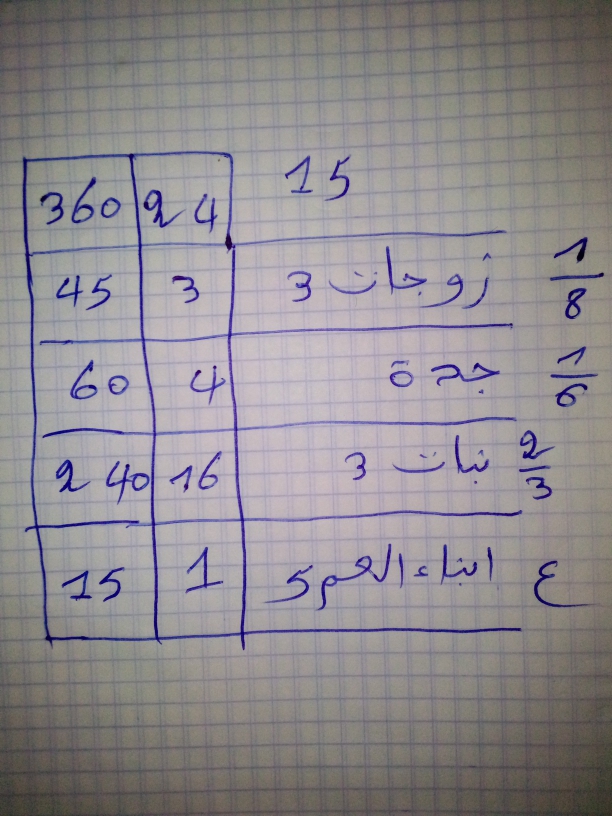 15 24 360
1/8 زوجات 3 3 45
1/6 جدة 4 60
2/3 بنات 3 16 240
ع ابناء العم 5 1 15